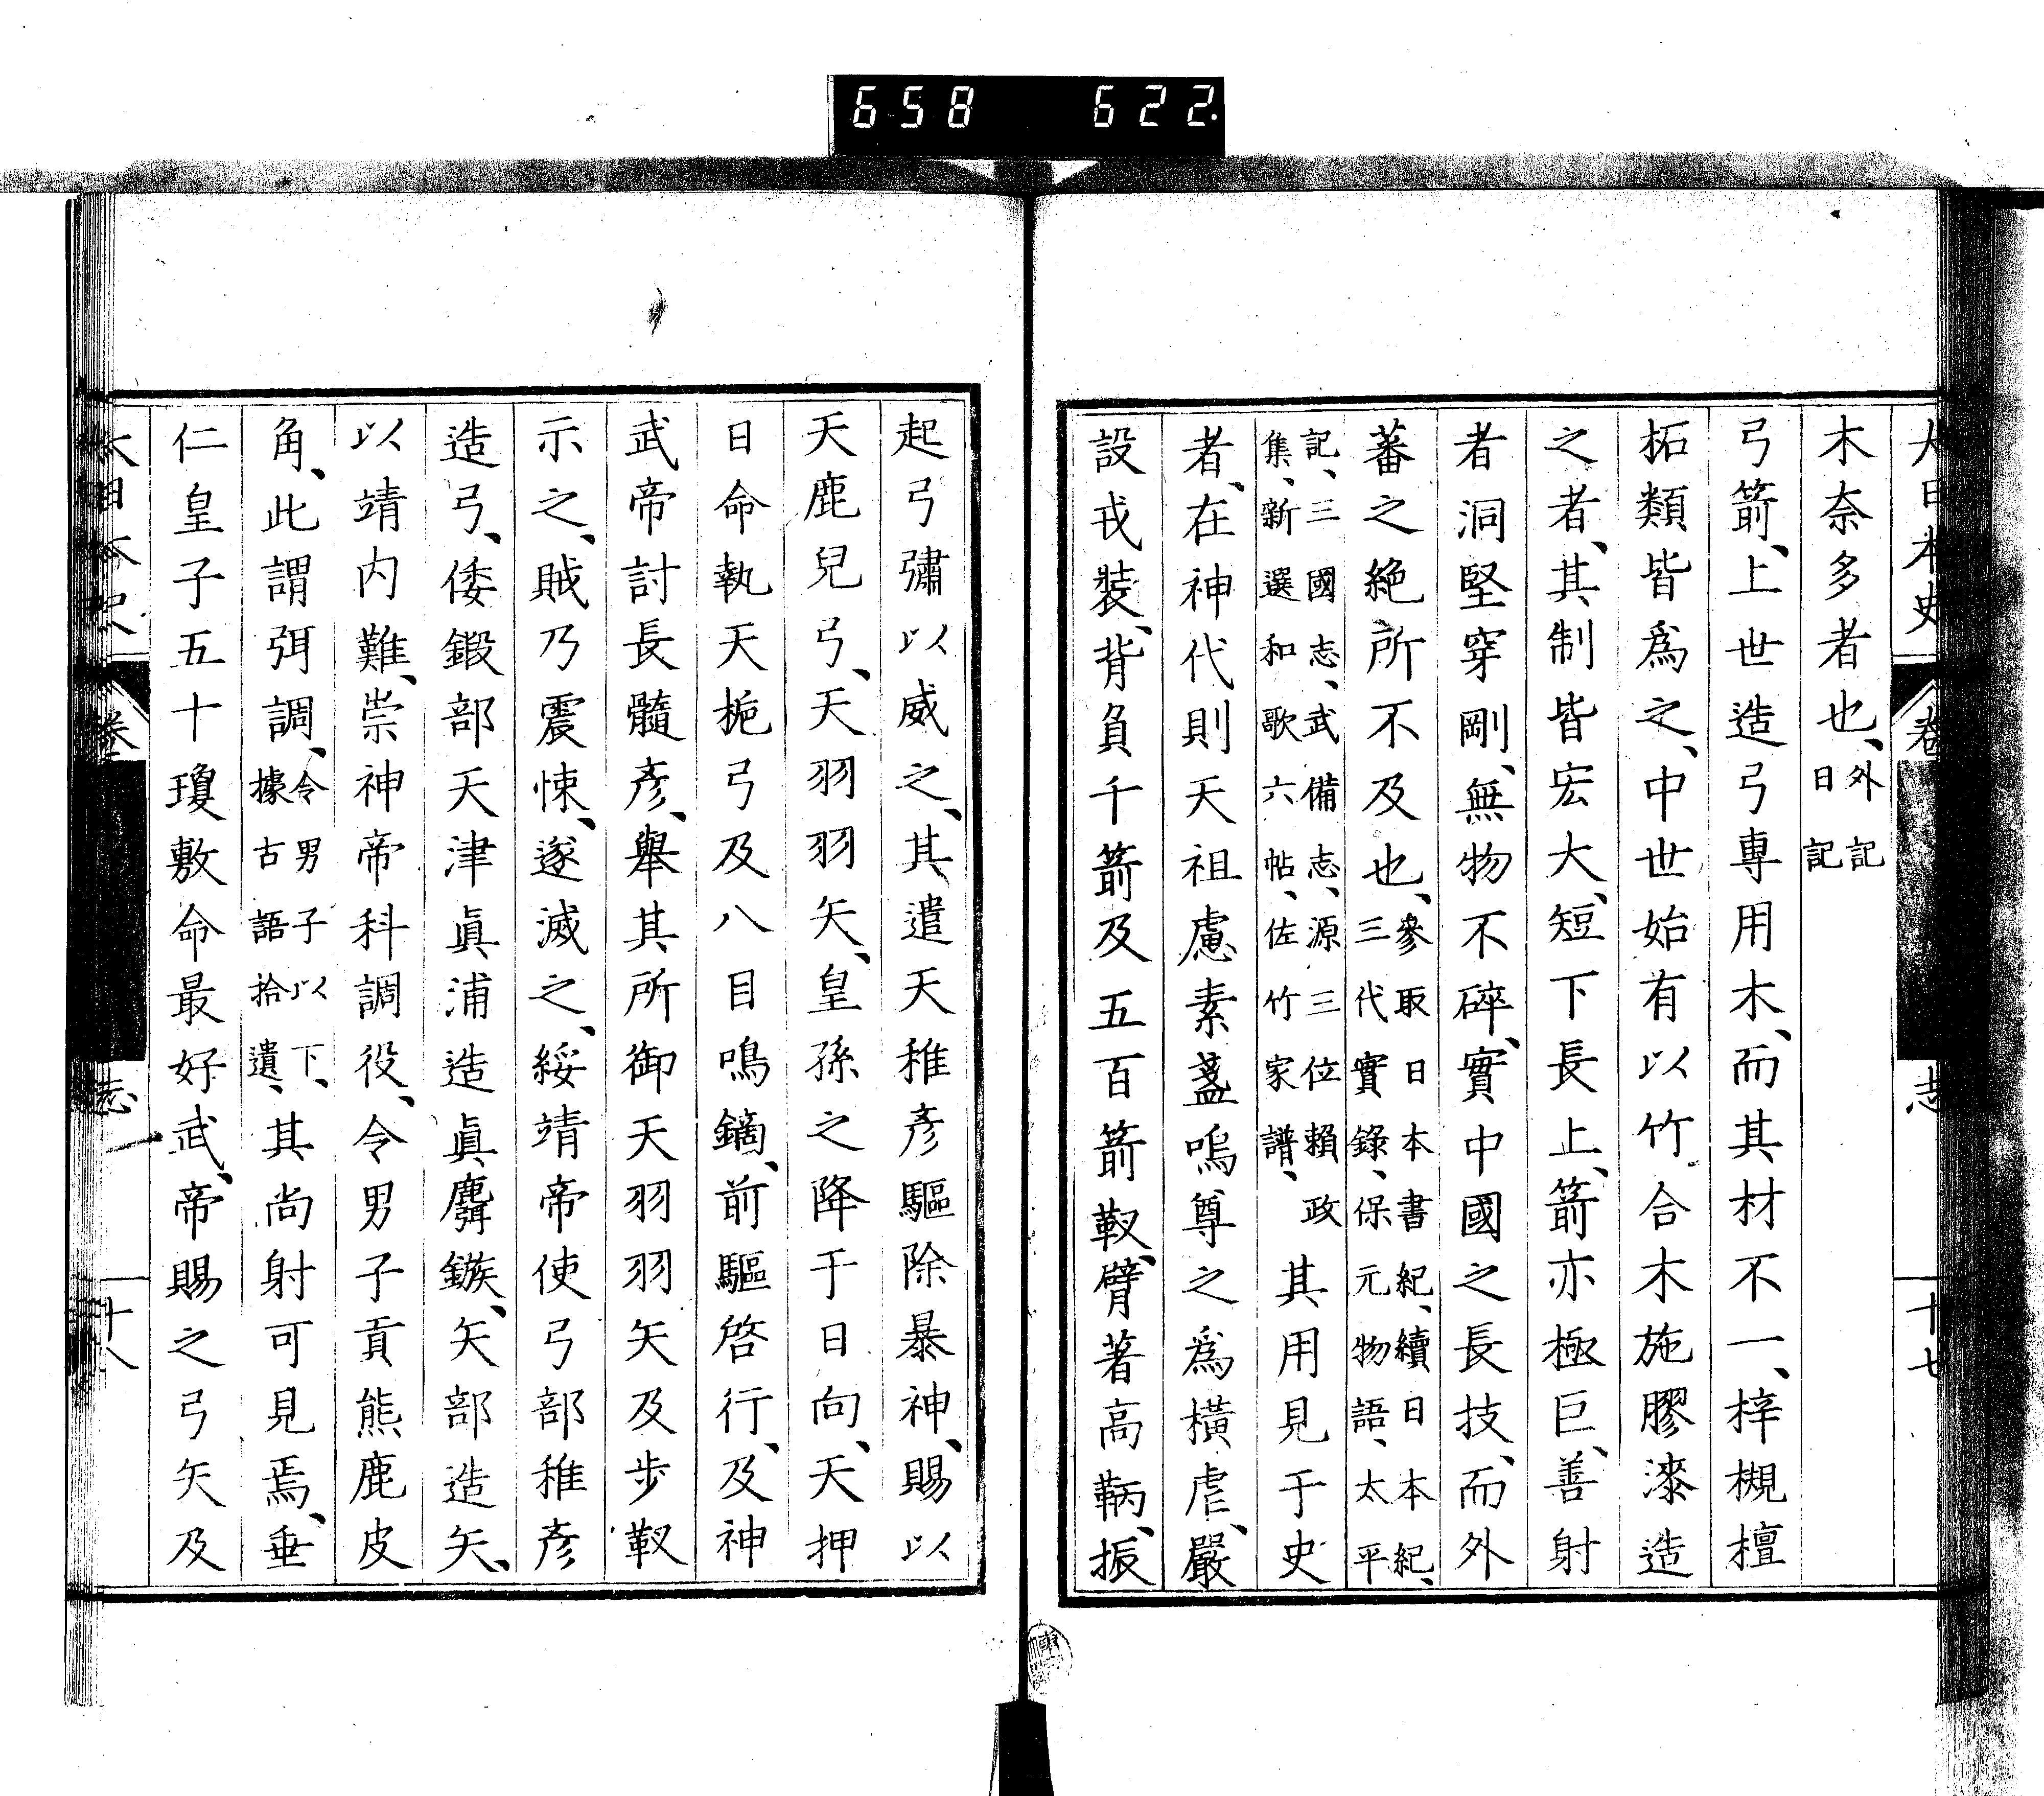 658 622
大日本史 卷 志 十七
木奈多者也、外記日記
弓箭、上世造弓專用木、而其材不一、梓槻檀
柘類皆爲之、中世始有以竹合木施膠漆造
之者、其制皆宏大、短下長上、箭亦極巨、善射
者洞堅穿剛、無物不碎、實中國之長技、而外
蕃之絶所不及也、參取日本書紀、續日本紀、三代實錄、保元物語、太平
記、三國志、武備志、源三位賴政集、新選和歌六帖、佐竹家譜、其用見于史
者、在神代則天祖慮素盞嗚尊之爲橫虐、嚴
設戎裝、背負千箭及五百箭靫、臂著高鞆、振
起弓彇以威之、其遣天稚彥驅除暴神、賜以
天鹿兒弓、天羽羽矢、皇孫之降于日向、天押
日命執天梔弓及八目鳴鏑、前驅啓行、及神
武帝討長髓彥、擧其所御天羽羽矢及步靫
示之、賊乃震悚、遂滅之、綏靖帝使弓部稚彥
造弓、倭鍛部天津眞浦造眞麛鏃、矢部造矢、
以靖内難、崇神帝科調役、令男子貢熊鹿皮
角、此謂弭調、令男子以下、據古語拾遺、其尚射可見焉、垂
仁皇子五十瓊敷命最好武、帝賜之弓矢及
大日本史 卷 志 十八